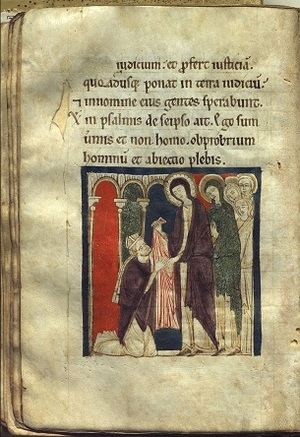 iudicium: et ꝓfert iusticiā.
quo adusq; ponat in terra iudiciū.
⁊ innomine eius gentes sperabunt.
Et in psalmis de seipso ait. Ego sum
uermis et non homo. obprobrium
hominū et abiectio plebis.